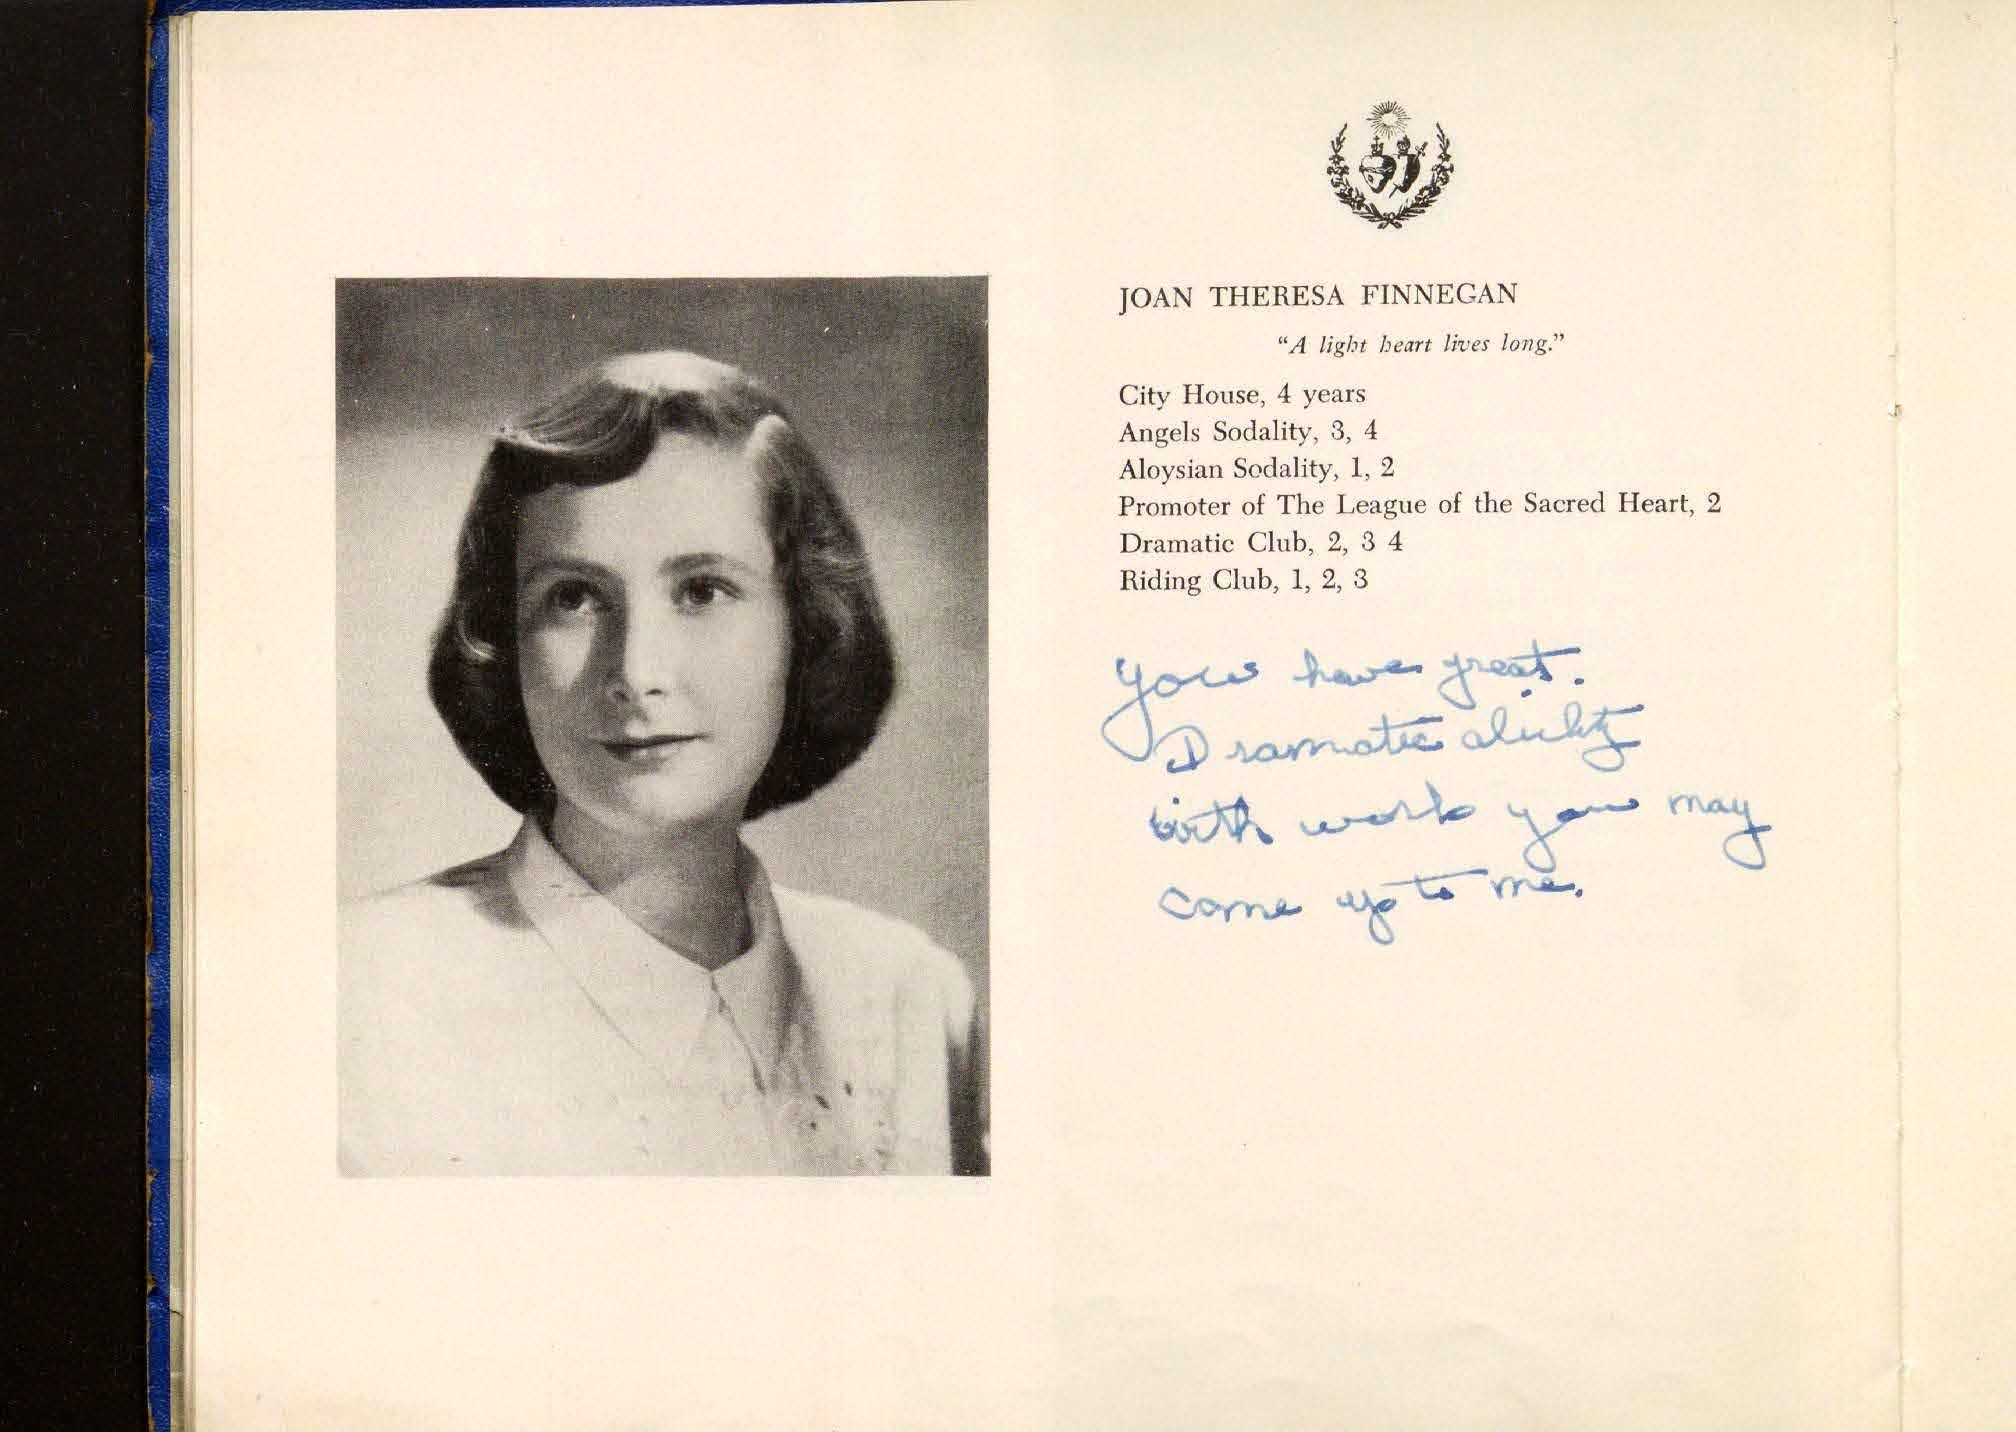 JOAN THERESA FINNEGAN
"A light heart lives long."
City House, 4 years
Angels Sodality, 3, 4
Aloysian Sodality, 1, 2
Promoter of The League of the Sacred Heart, 2
Dramatic Club, 2, 3 4
Riding Club, 1, 2, 3
You have great.
Dramatic ability
with work you may
come up to me.